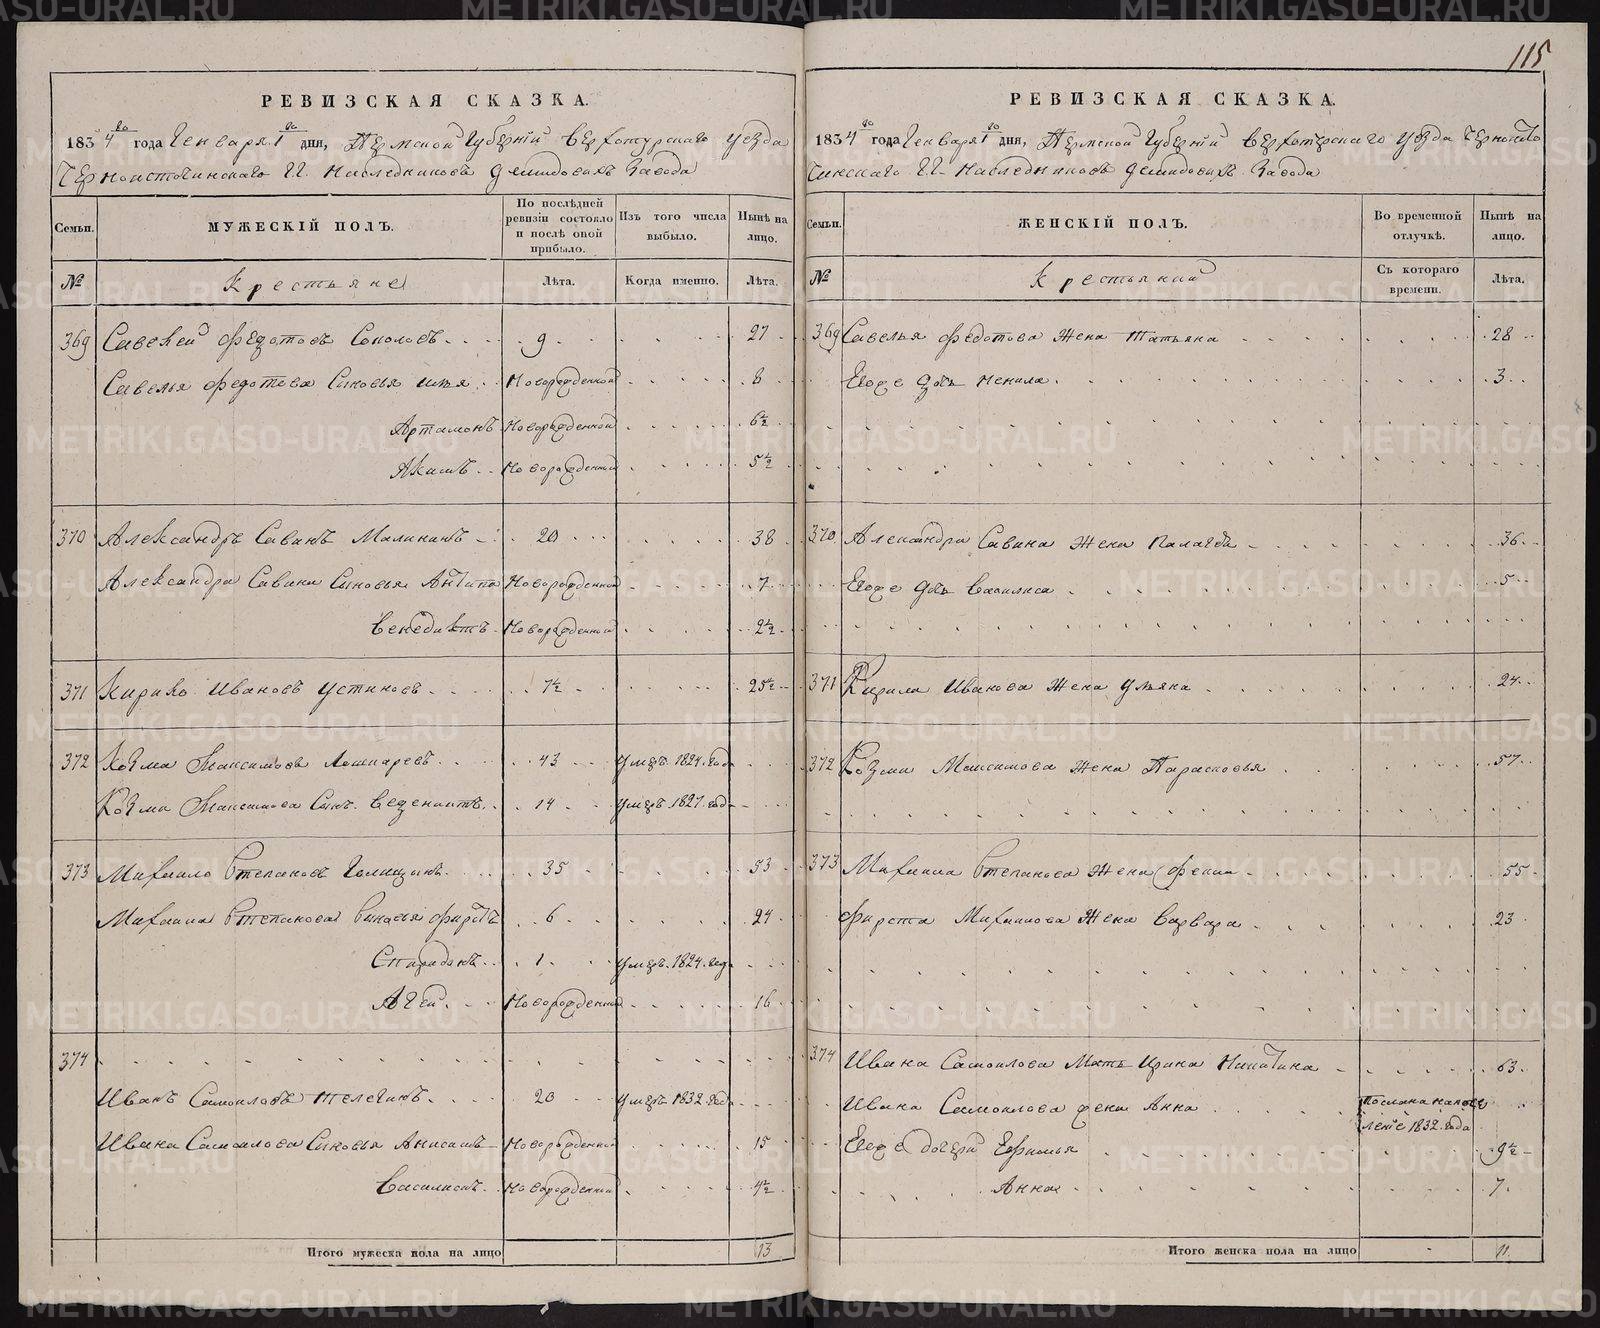 115
РЕВИЗСКАЯ СКАЗКА.
1834го года Генваря 1го дня, Пермской Губерніи Верхотурскаго уезда
Черноисточинскаго ГГ. Наследниковъ Демидовыхъ Завода
Семьи. МУЖЕСКІЙ ПОЛЪ. По послѣдней ревизіи состояло и послѣ оной прибыло. Изъ того числа выбыло. Нынѣ на лицо.
№ Крестьяне Лѣта. Когда именно. Лѣта.
369 Савелей Федотовъ Соколовъ 9 27
Савелья Федотова Сыновья Илья Новорожденной 8
Артамонъ Новорожденной 6½
Акимъ Новорожденной 5½
370 Александръ Савинъ Малининъ 20 38
Александра Савина Сыновья Антипа Новорожденной 7
Венедиктъ Новорожденной 2½
371 Кирило Ивановъ Устиновъ 7½ 25½
372 Козма Максимовъ 43 умеръ 1824 года
Козмы Максимова Сынъ 14 умеръ 1827 года
373 Михаило Степановъ Голицынъ 35 53
Михаила Степанова Сыновья Фирстъ 6 24
Спиридонъ 1 умеръ 1824 года
Агей Новорожденной 16
374
Иванъ Самойловъ Телегинъ 20 умеръ 1832 года
Ивана Самойлова Сыновья Анисимъ Новорожденной 15
Василискъ Новорожденной 4½
Итого мужеска пола на лицо 13
РЕВИЗСКАЯ СКАЗКА.
1834го года Генваря 1го дня, Пермской Губерніи Верхотурскаго уезда Черноисто
чинскаго ГГ. Наследниковъ Демидовыхъ Завода
Семьи. ЖЕНСКІЙ ПОЛЪ. Во временной отлучкѣ. Нынѣ на лицо.
№ Крестьянки Съ котораго времени. Лѣта.
369 Савелья Федотова Жена Татьяна 28
Егоже дочь Ненила 3
370 Александра Савина Жена Палагея 36
Егоже дочь Василиса 5
371 Кирила Иванова Жена Ульяна 24
372 Козмы Максимова Жена Парасковья 57
373 Михаила Степанова Жена Фекла 55
Фирста Михаилова Жена Варвара 23
374 Ивана Самойлова Мать Ирина Никитина 63
Ивана Самойлова жена Анна послана на посе
леніе 1832 года
Егоже дочери Ефимья 9½
Анна 7
Итого женска пола на лицо - 11
METRIKI.GASO-URAL.RU